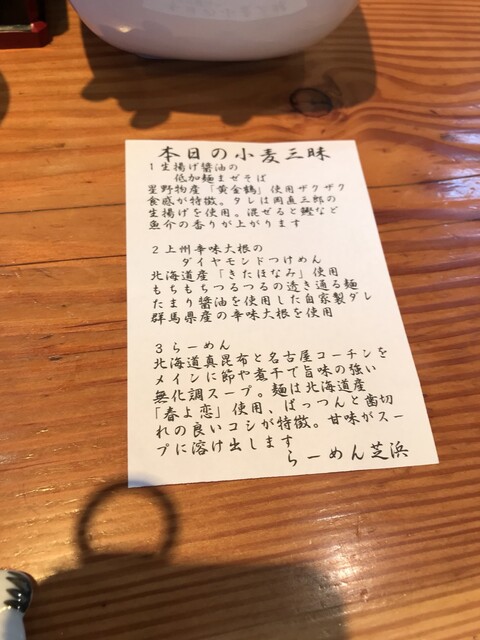 本日の小麦三昧
1生揚げ醤油の
低加麺まぜそば
星野物産「黄金鶴」使用ザクザク
食感が特徴。タレは岡直三郎の
生揚げを使用。混ぜると鰹など
魚介の香りが上がります
2上州辛味大根の
ダイヤモンドつけめん
北海道産「きたほなみ」使用
もちもちつるつるの透き通る麺
たまり醤油を使用した自家製ダレ
群馬県産の辛味大根を使用
3らーめん
北海道真昆布と名古屋コーチンを
メインに節や煮干で旨味の強い
無化調スープ。麺は北海道産
「春よ恋」使用、ぱっつんと歯切
れの良いコシが特徴。甘味がスー
プに溶け出します
らーめん芝浜